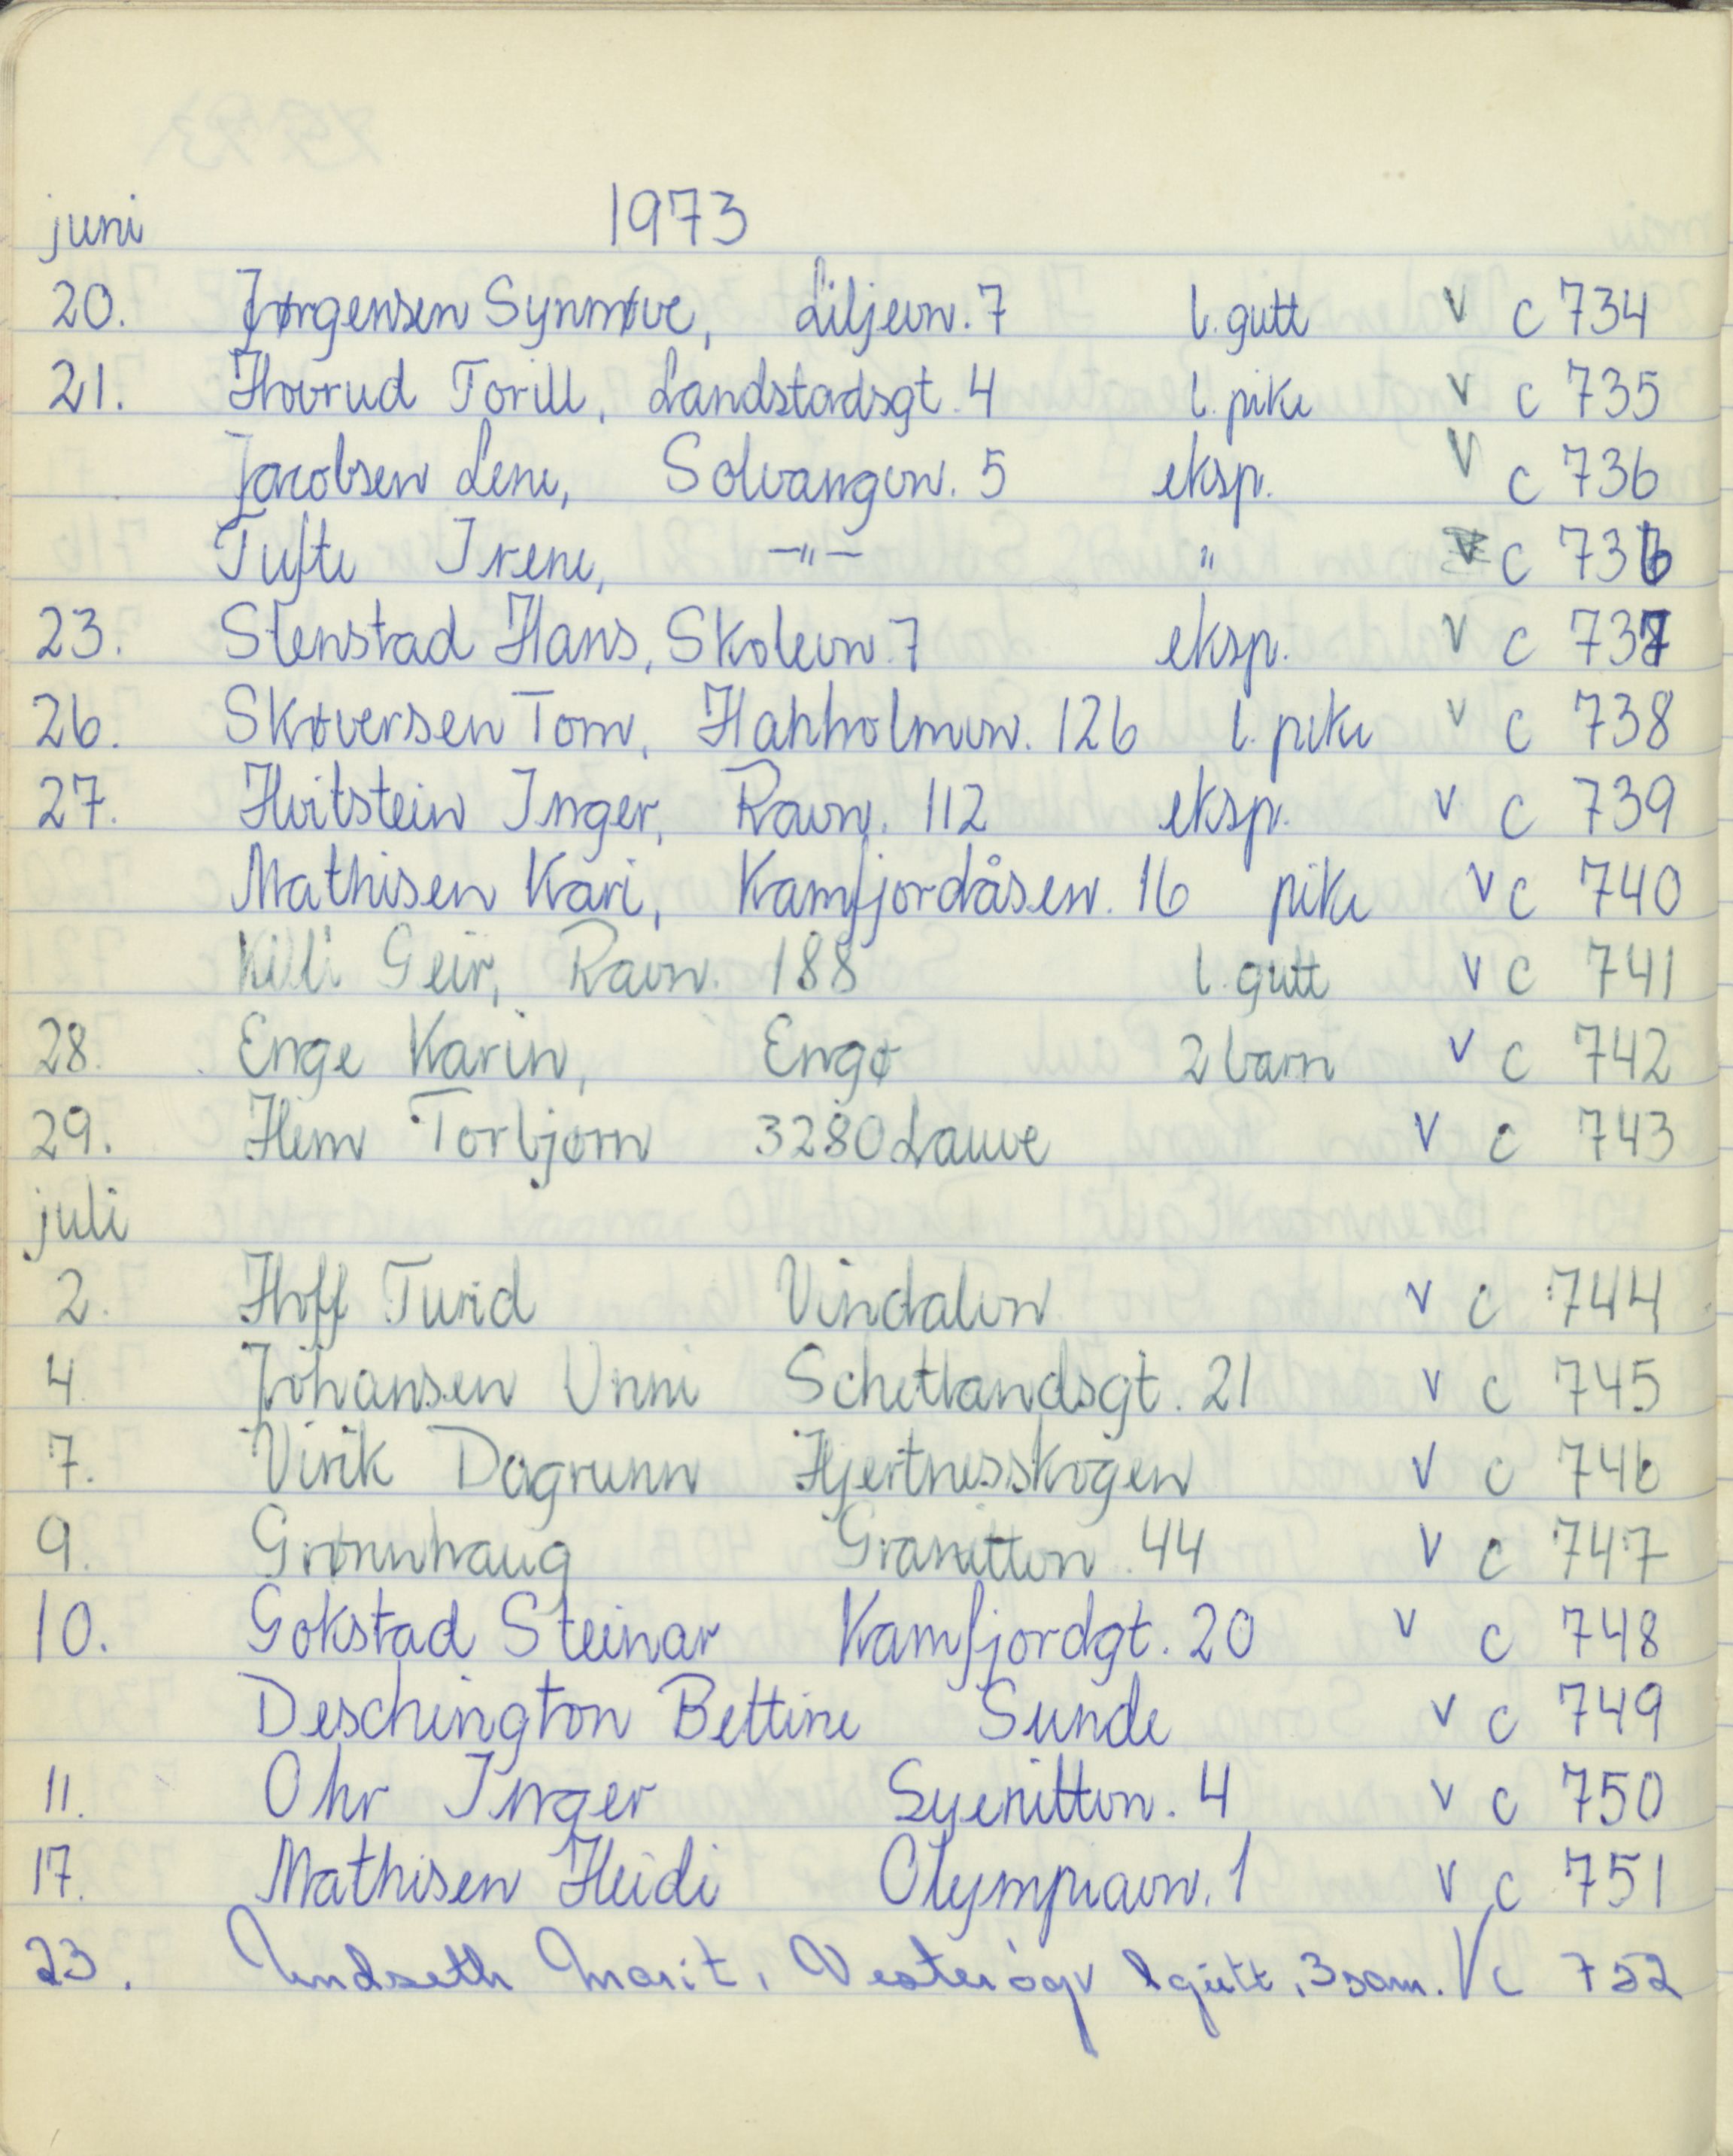 juni 1973
20. Jørgensen Synnøve, Liljevn. 7 l. gutt v c 734
21. Hovrud Torill, Landstadsgt. 4 l. pike v c 735
Jacobsen Lene, Solvangvn. 5 eksp. v c 736
Tufte Irene, -"- " v c 736
23. Stenstad Hans, Skolevn. 7 eksp. v c 737
26. Skøversen Tom, Hahholmvn. 126 l. pike v c 738
27. Hvitstein Inger, Ravn. 112 eksp. v c 739
Mathisen Kari, Kamfjordåsen. 16 pike v c 740
Killi Geir, Ravn. 188 l. gutt v c 741
28. Enge Karin, Engø 2 barn v c 742
29. Hem Torbjørn 3280 Lauve v c 743
juli
2. Hoff Turid Vindalvn v c 744
4. Johansen Unni Schetlandsgt. 21 v c 745
7. Virik Dagrunn Hjertnesskogen v c 746
9. Grønnhaug Granittvn. 44 v c 747
10. Gokstad Steinar Kamfjordgt. 20 v c 748
Deschington Bettine Sunde v c 749
11. Ohr Inger Syenittvn. 4 v c 750
17. Mathisen Heidi Olympiavn. 1 v c 751
23. Undseth Marit, l gutt, 3 sam. V c 752